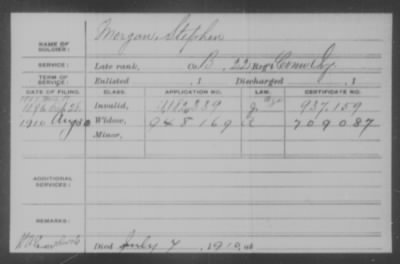 NAME OF SOLDIER: Morgan, Stephen
SERVICE: Late rank, Co. B, 22 Reg't Conn Inf
TERM OF SERVICE: Enlisted , 1 Discharged , 1
DATE OF FILING. CLASS. APPLICATION NO. LAW. CERTIFICATE NO.
Invalid, 1182339 937.159
1910 Aug Widow, 948169 709087
Minor,
ADDITIONAL SERVICES:
REMARKS:
Died July 7, 1910, at